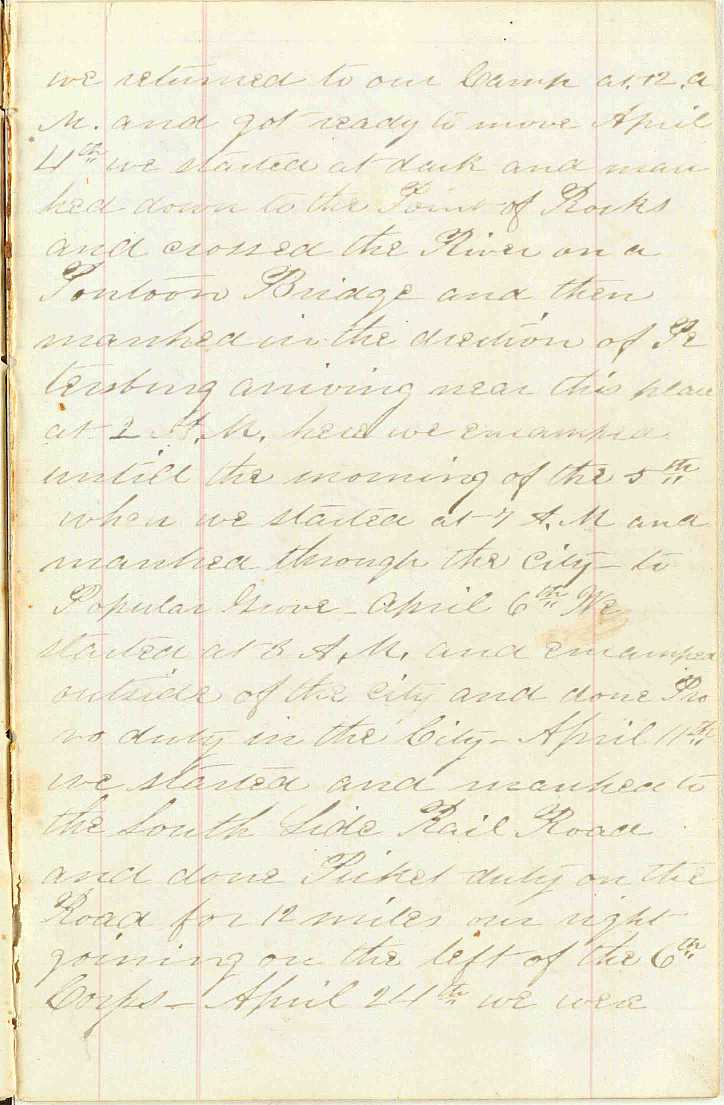 we returned to our Camp at. 12. a
M. and got ready to move April
4th we started at dark and mar
hed down to the Point of Rocks
and crossed the River on a
Pontoon Bridge and then
marched in the direction of Pe
tersburg arriving near this place
at 2 A.M. here we encamped
untill the morning of the 5th
when we started at 7 A.M and
marched through the city - to
Popular Grove - April 6th We
started at 3 A.M. and encamped
outside of the city and done Pro
vo duty in the City - April 11th
we started and marched to
the South Side Rail Road
and done Picket duty on the
Road for 12 miles our right
joining on the left of the 6th
Corps - April 24th we were